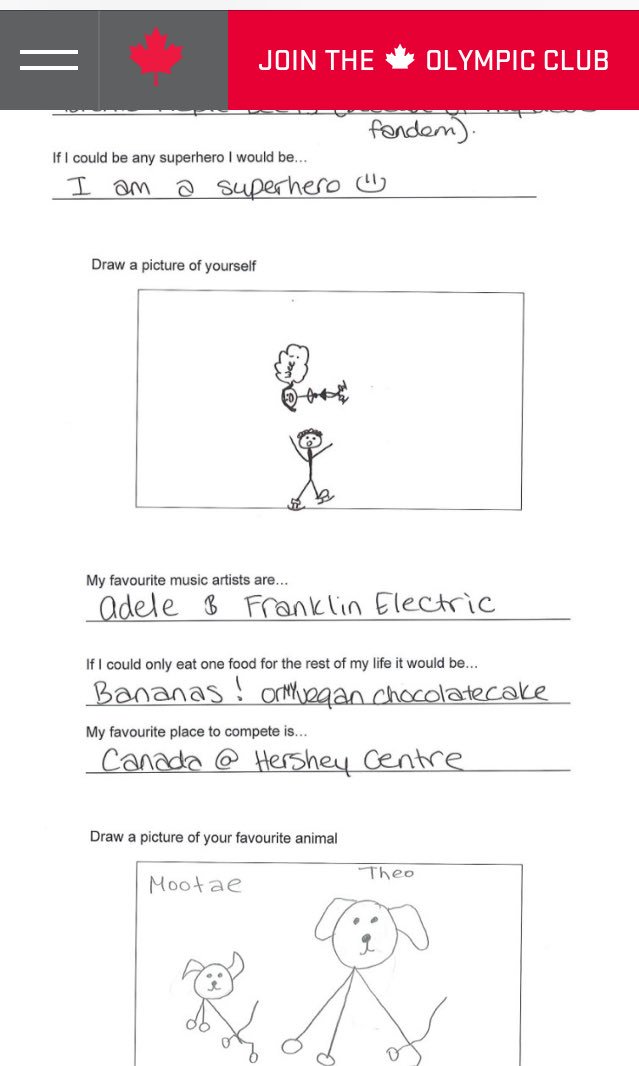 JOIN THE OLYMPIC CLUB
fandom).
If I could be any superhero I would be...
I am a superhero
Draw a picture of yourself
wee!
My favourite music artists are...
adele & Franklin Electric
If I could only eat one food for the rest of my life it would be...
Bananas! or my vegan chocolatecake
My favourite place to compete is...
Canada @ Hershey Centre
Draw a picture of your favourite animal
Mootae
Theo